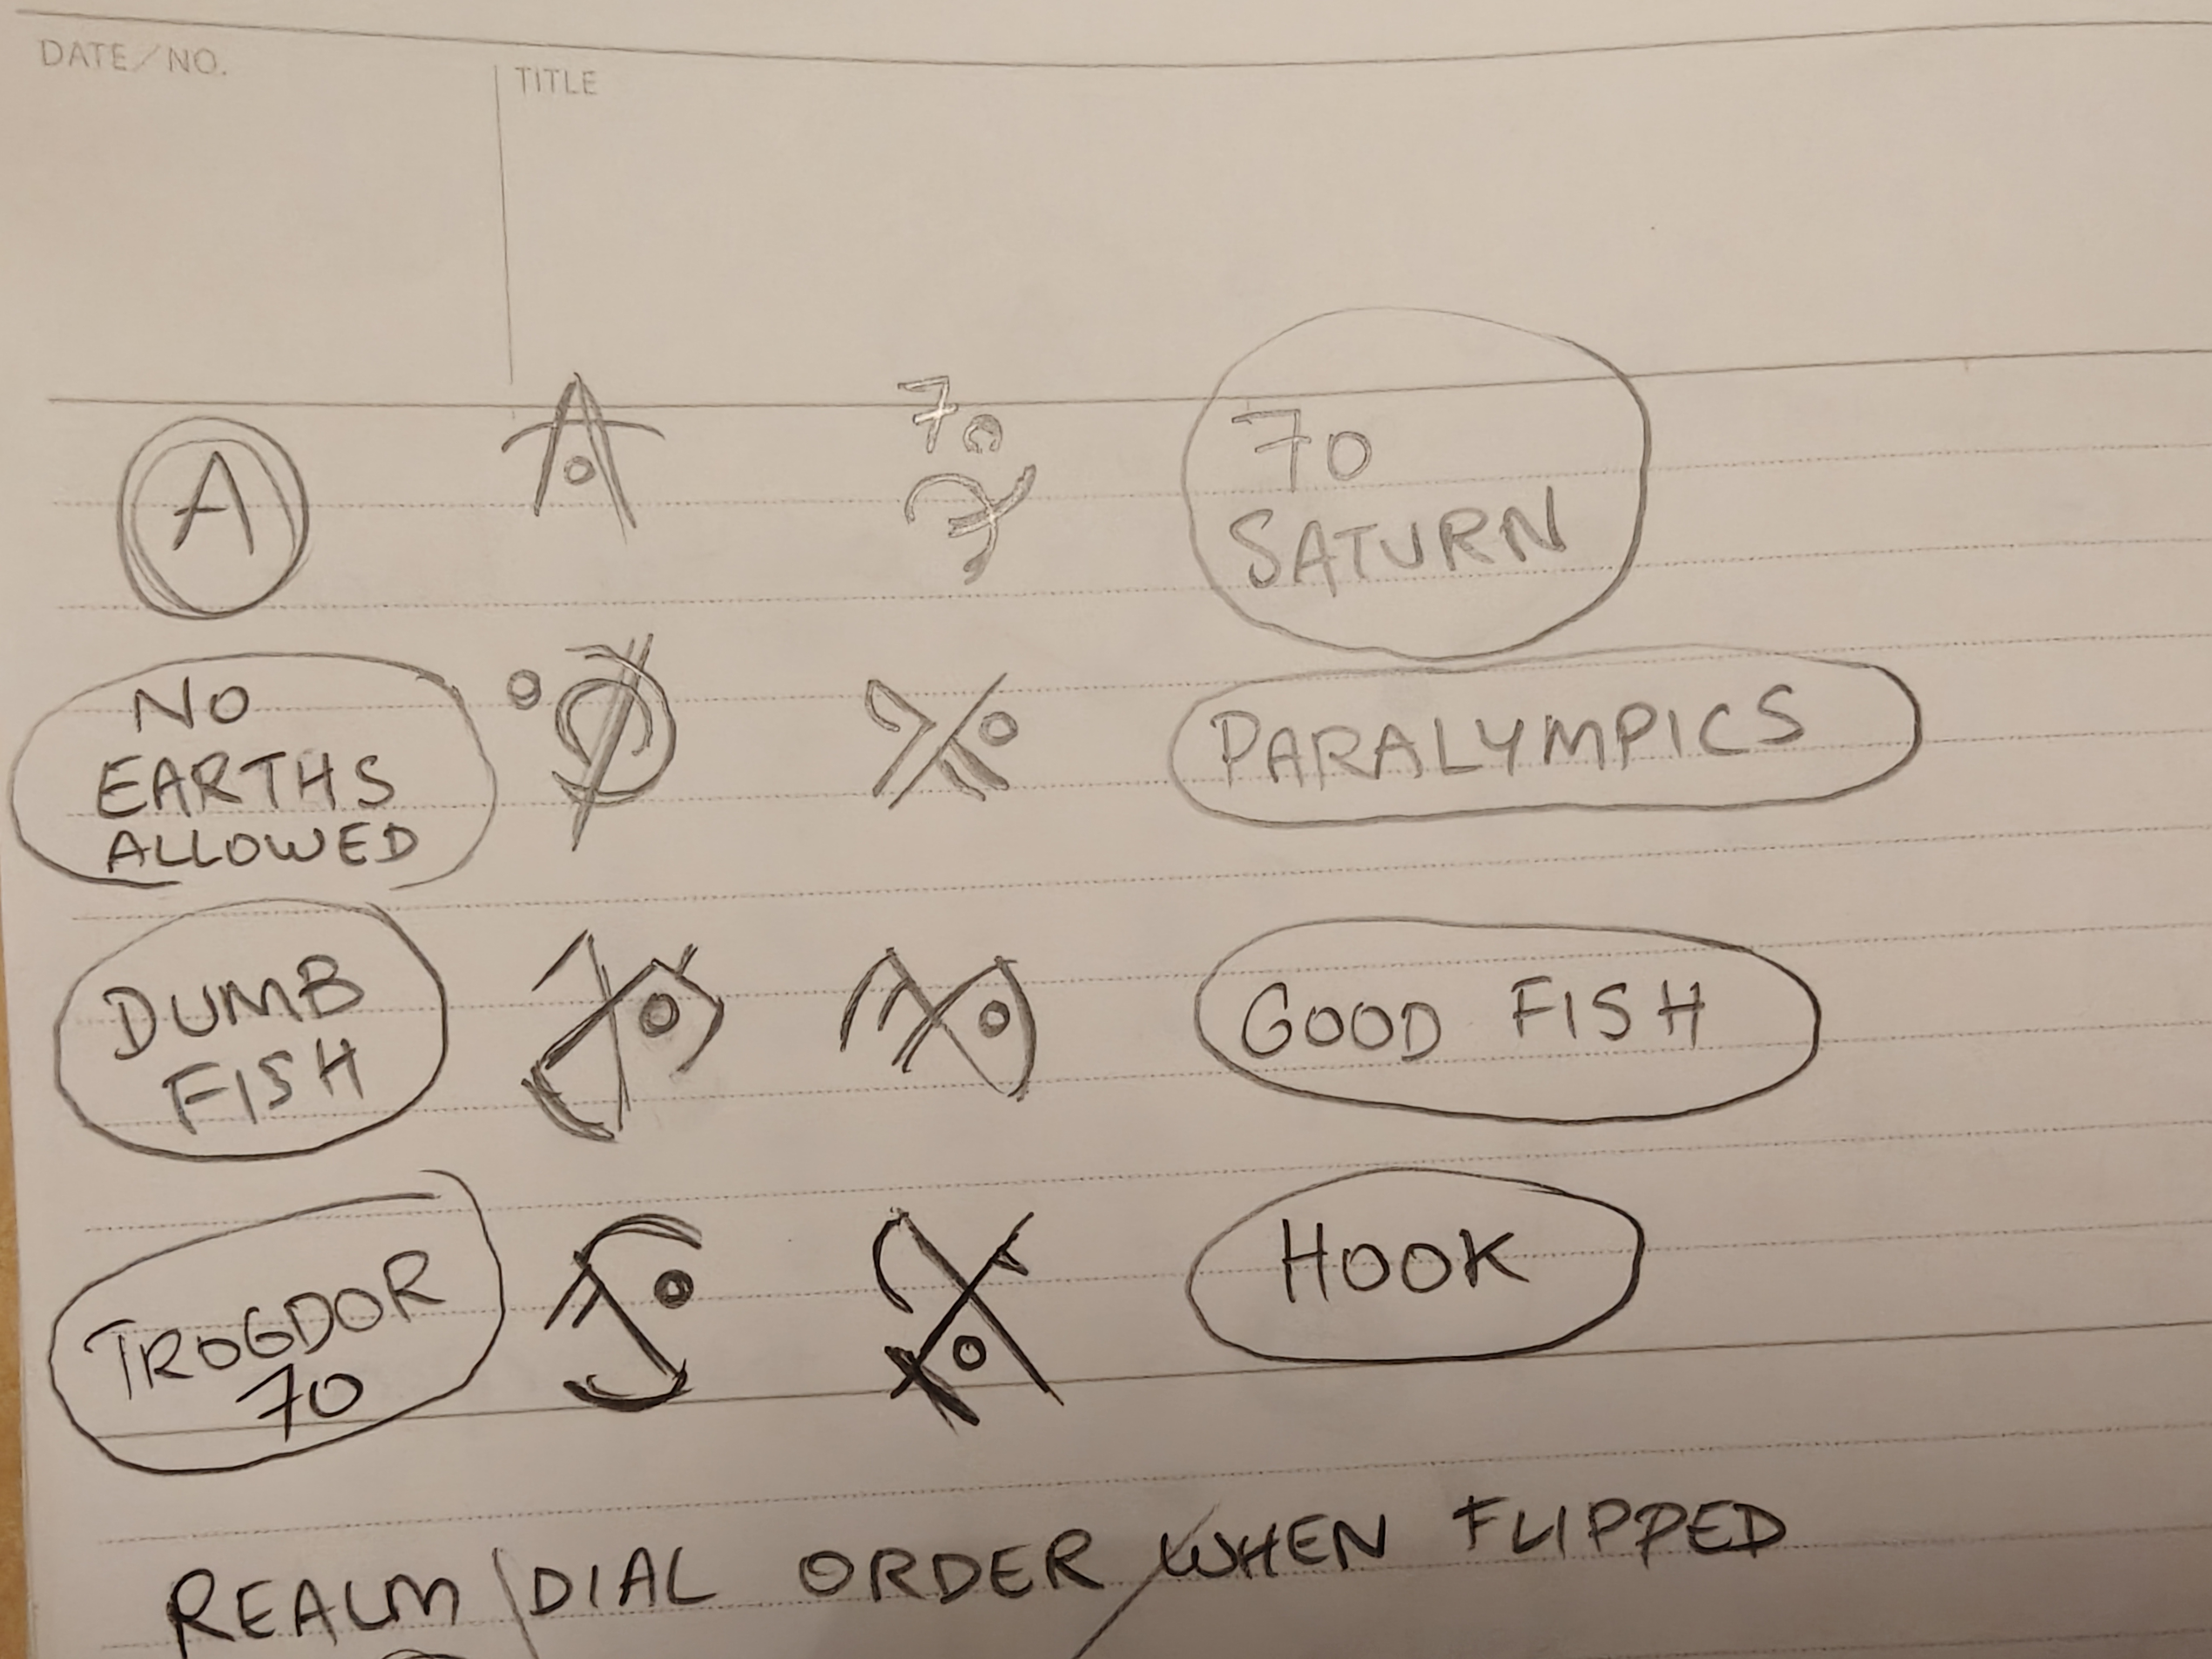 DATE/NO.
TITLE
A
70
70
SATURN
NO
EARTHS
ALLOWED
PARALYMPICS
DUMB
FISH
GOOD FISH
TROGDOR
70
HOOK
REALM / DIAL ORDER / WHEN FLIPPED